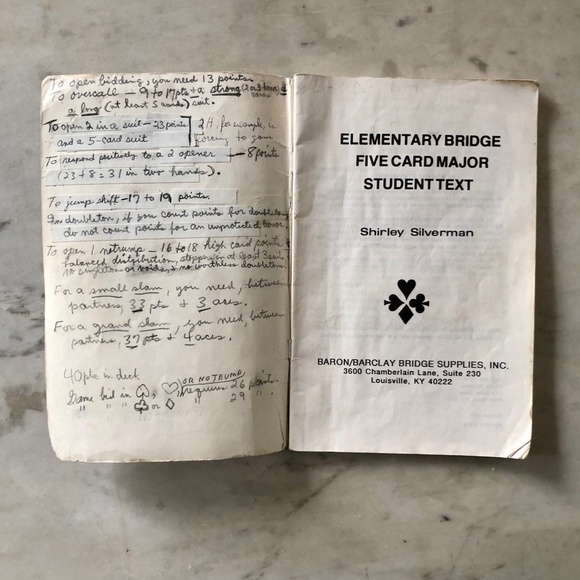 To open bidding, you need 13 points.
To overcall — 9 to 17 pts + a strong (2 or 3 honor)
a long (at least 5 cards) suit.
To open 2 in a suit - 23 points
and a 5-card suit
2H, for example, is
forcing to game
To respond positively to a 2 opener — 8 points
(23+8=31 in two hands).
To jump shift - 17 to 19 points.
In doubleton, if you count points for doubleton
do not count points for an unprotected honor.
To open 1 notrump - 16 to 18 high card points &
balanced distribution, stoppers in at least 3 suits
no singletons or voids, & no worthless doubletons
For a small slam, you need, between
partners, 33 pts & 3 aces.
For a grand slam, you need, between
partners, 37 pts & 4 aces.
40 pts in deck
OR NOTRUMP
Game bid in ♠, ♥, requires 26 points.
" " " ♣ or ♦ " 29 "
ELEMENTARY BRIDGE
FIVE CARD MAJOR
STUDENT TEXT
Shirley Silverman
BARON/BARCLAY BRIDGE SUPPLIES, INC.
3600 Chamberlain Lane, Suite 230
Louisville, KY 40222